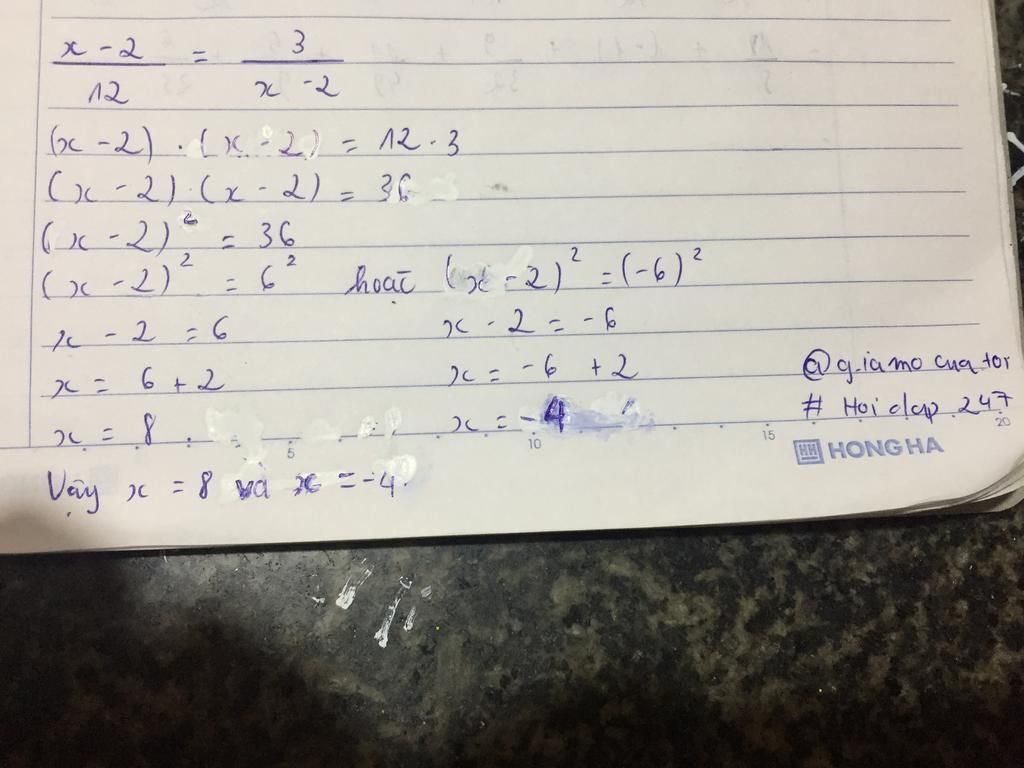 x - 2 / 12 = 3 / x - 2
(x - 2) . (x - 2) = 12 . 3
(x - 2) . (x - 2) = 36
(x - 2)² = 36
(x - 2)² = 6² hoặc (x - 2)² = (-6)²
x - 2 = 6 x - 2 = -6
x = 6 + 2 x = -6 + 2
x = 8 x = -4
Vậy x = 8 và x = -4.
@giamo cua tor
# Hoi dap 247
5 10 15 20
HH HONG HA